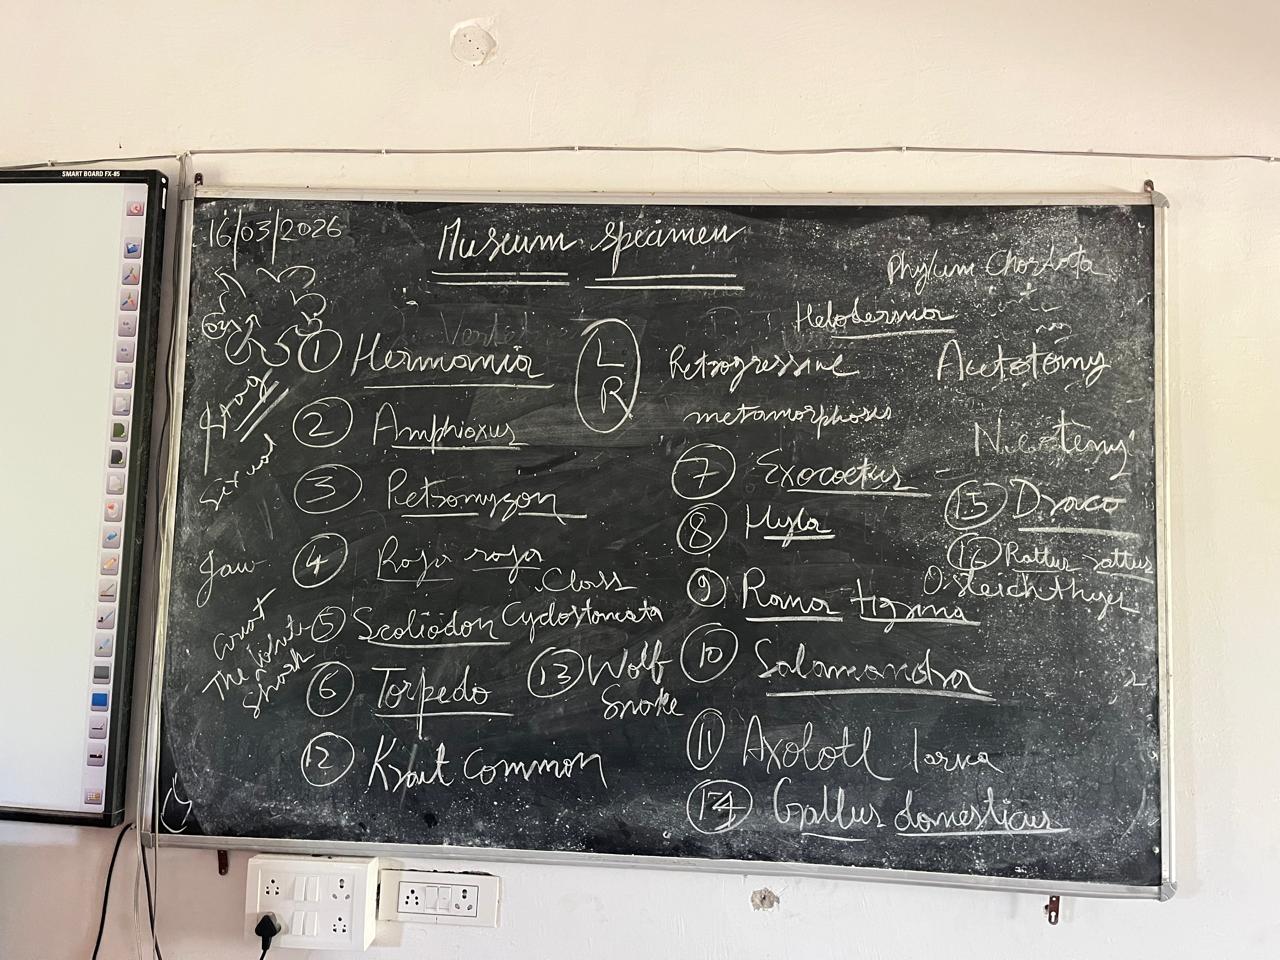 SMART BOARD FX-85
16/03/2026
Museum specimen
Phylum Chordata
Heloderma
① Hermania
L
R
Retrogressive
metamorphosis
Acototomy
② Amphioxus
Neotemy
③ Petromyzon
④ Raja raja
Class
Cyclostomata
⑤ Scoliodon
⑥ Torpedo
⑬ Wolf
Snake
⑫ Krait Common
Jaw
Great
The white
Shark
⑦ Exocoetus
⑧ Hyla
⑨ Rana tigrina
⑩ Salamandra
⑪ Axolotl larva
⑭ Gallus domesticus
⑮ Draco
⑯ Rattus rattus
Osteichthyes